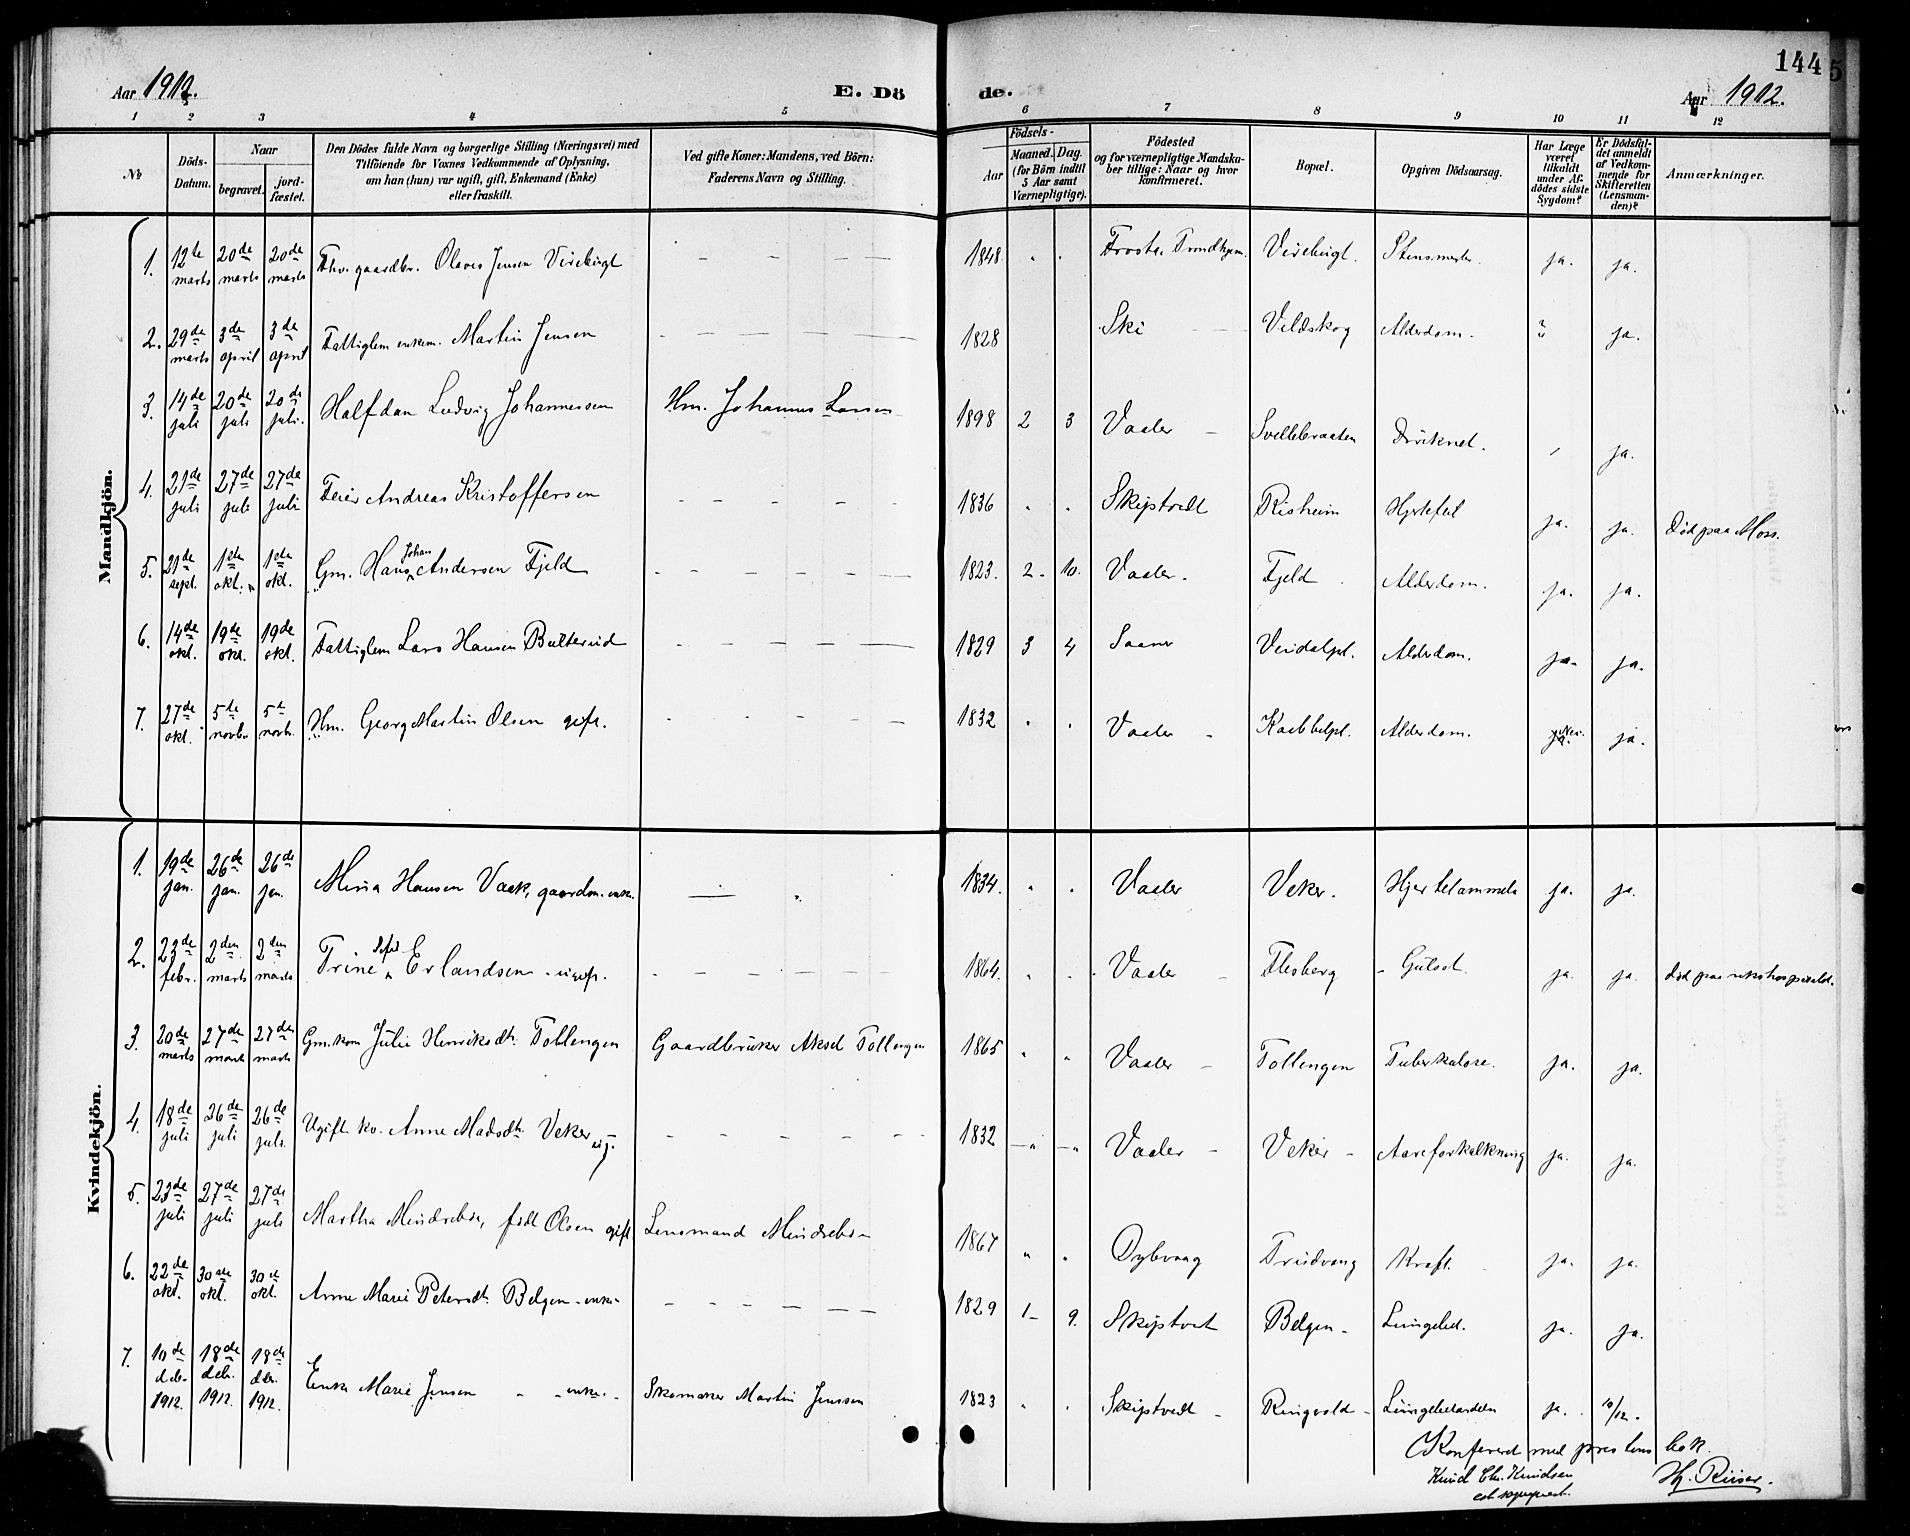 144
Aar 1912.
E. Dö
de.
Aar 1912.
1 2 3 4 5 6 7 8 9 10 11 12
No
Döds-Datum.
Naar
begravet.
jord-fæstet.
Den Dödes fulde Navn og borgerlige Stilling (Næringsvei) med
Tilföiende for Voxnes Vedkommende af Oplysning,
om han (hun) var ugift, gift, Enkemand (Enke)
eller fraskilt.
Ved gifte Koner: Mandens, ved Börn:
Faderens Navn og Stilling.
Födsels-
Aar
Maaned. Dag.
(for Börn indtil
5 Aar samt
Værnepligtige).
Födested
og for værnepligtige Mandska-
ber tillige: Naar og hvor
konfirmeret.
Bopæl.
Opgiven Dödsaarsag.
Har Læge
været
tilkaldt
under Af-
dödes sidste
Sygdom?
Er Dödsfal-
det anmeldt
af Vedkom-
mende for
Skifteretten
(Lensman-
den)?
Anmærkninger.
Mandkjön.
1. 12te marts 20de marts 20de marts Fhv. gaardbr. Olaves Jensen Virebugt 1848 Frosta, Trondhjem. Virebugt. ja. ja.
2. 29de marts 3de april 3de april Fattiglem enkem. Martin Jensen 1828 Ski Vildskog Alderdom. ? ja.
3. 14de juli 20de juli 20de juli. Halfdan Ludvig Johannessen Hm. Johannes Larsen 1898 2 3 Vaaler Svellebraaten Druknet. ja.
4. 21de juli 27de juli 27de juli Feier Andreas Kristoffersen 1836 Skiptvedt Risheim Hjertefeil ja. ja. Död paa Moss.
5. 21de sept. 1ste okt. 1ste okt. Gm. Hans Johan Andersen Fjeld 1823. 2. 10. Vaaler. Fjeld Alderdom. ja. ja.
6. 14de okt. 19de okt. 19de okt. Fattiglem Lars Hansen Bulterud 1829 3 4 Saaner Vindalpl. Alderdom. ja. ja.
7. 27de okt. 5te novbr. 5te novbr. Hm. Georg Martin Olsen gift. 1832 Vaaler Kabbelpl. Alderdom. Nei. ja.
Kvindekjön.
1. 19de jan. 26de jan. 26de jan. Mina Hansen Vaak, gaardm. enke. 1834. Vaaler Veker. Hjertelammels ja. ja.
2. 23de febr. 2den marts 2den marts Trine Erlandsen ugift. 1864. Vaaler Flesberg Gulsot. ja. ja. död paa rikshospitalet.
3. 20de marts 27de marts 27de marts Gm. kone Julie Henriksdtr. Tollengen Gaardbruker Aksel Tollengen 1865 Vaaler Tollengen Tuberkulose. ja. ja.
4. 18de juli 26de juli 26de juli. Ugift kv. Anne Madsdtr. Veker ug. 1832 Vaaler Veker Aareforkalkning ja. ja.
5. 23de juli 27de juli 27de juli Martha Mindrebø, född Olsen gift Lensmand Mindrebø 1867 Dybvaag Trudvang Kræft ja. ja.
6. 22de okt. 30te okt. 30te okt. Anne Marie Petersdtr. Belgen enke 1829 1 9. Skiptvet Belgen Lungebet. ja. ja.
7. 10de deb. 1912. 18de deb. 1912. 18de dbr. 1912. Enke Marie Jensen enke Skomaker Martin Jenssen 1823 Skiptvedt Ringvold Lungebetændelse ja. 10/12.
Konfereret med prestens bok.
Knud Chr. Knudsen
est sogneprest.
Hj. Riiser.